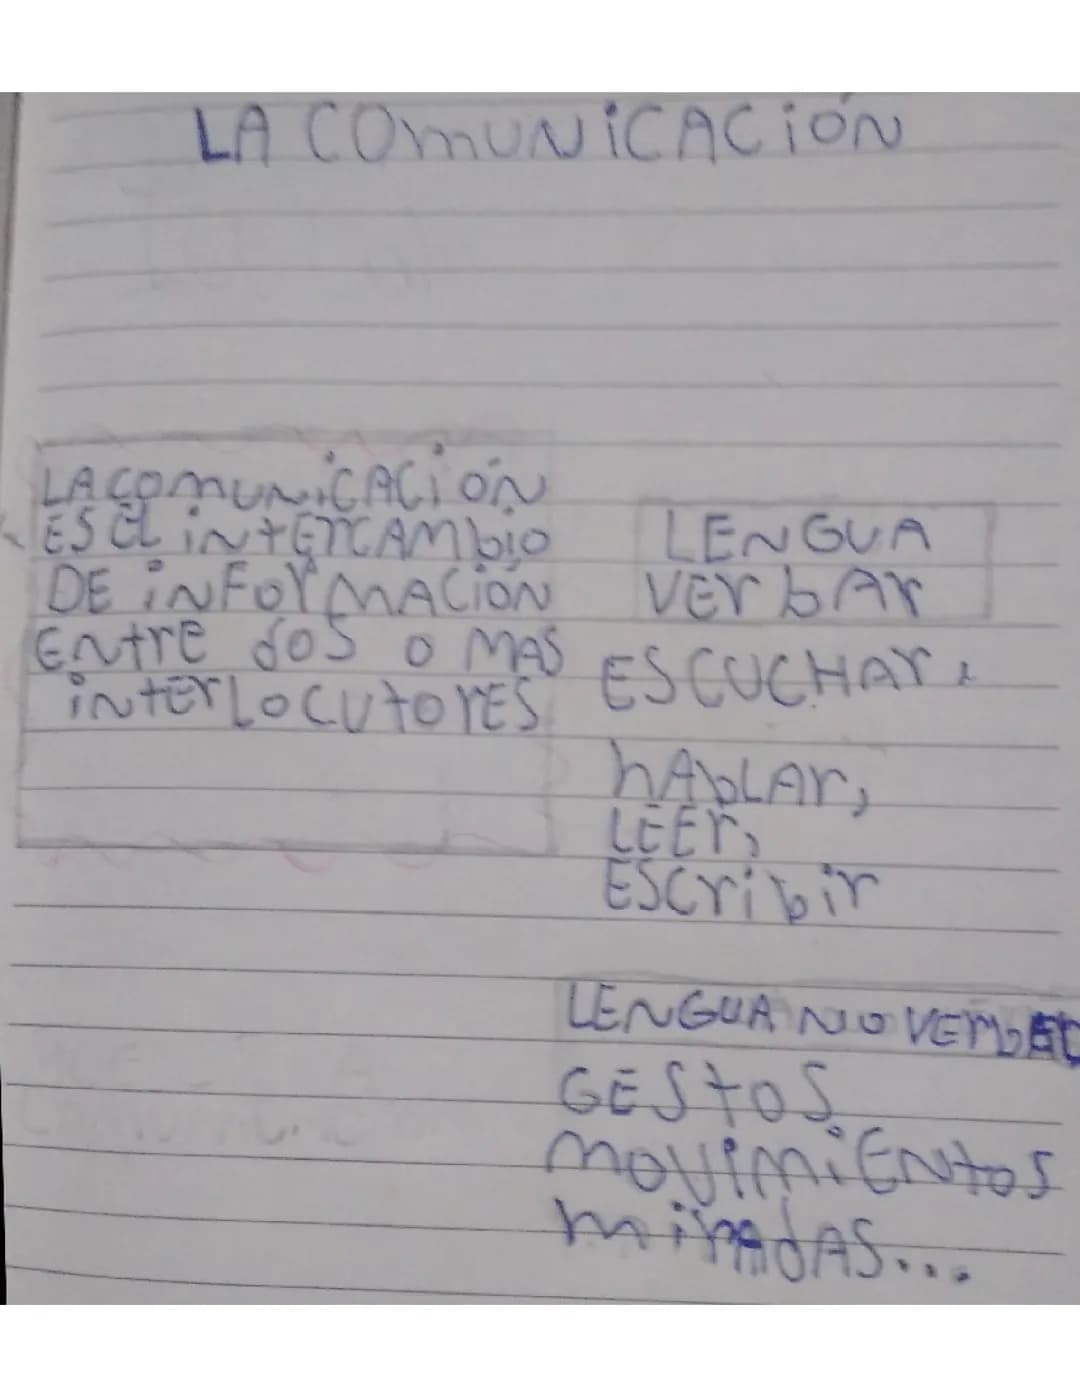 LA COMUNiCACiÓN
LA COMUNiCACiÓN
ES EL iNtERCAMbio
DE iNFOrMACiÓN
ENtrE dOS O MAS
iNtErLOCUtOrES
LENGUA
VErbAr
ESCUCHAr,
hAbLAr,
LEEr,
ESCribir
LENGUA NO VErbAL
GEStOS
MOViMiENtOS
MirAdAS...